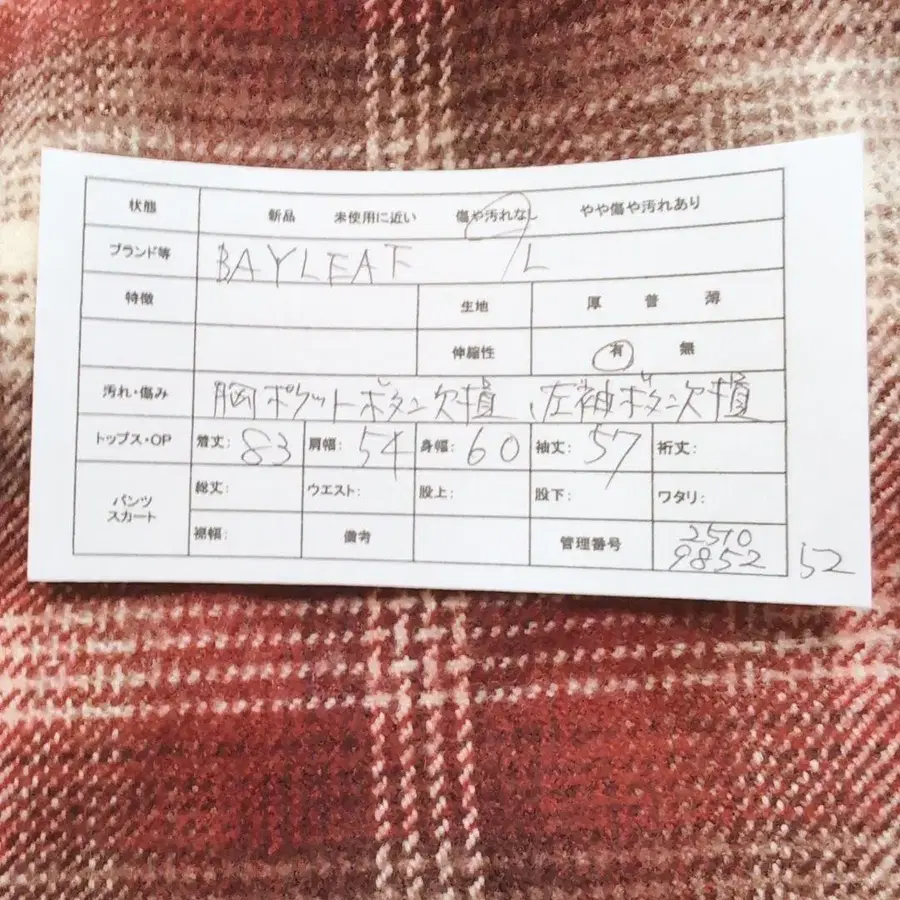 状態 新品 未使用に近い 傷や汚れなし やや傷や汚れあり
ブランド等 BAYLEAF /L
特徴 生地 厚 普 薄
伸縮性 有 無
汚れ・傷み 胸ポケットボタン欠損、左袖ボタン欠損
トップス・OP 着丈: 83 肩幅: 54 身幅: 60 袖丈: 57 裄丈:
パンツ スカート 総丈: ウエスト: 股上: 股下: ワタリ:
裾幅: 備考 管理番号 2510
9852 52